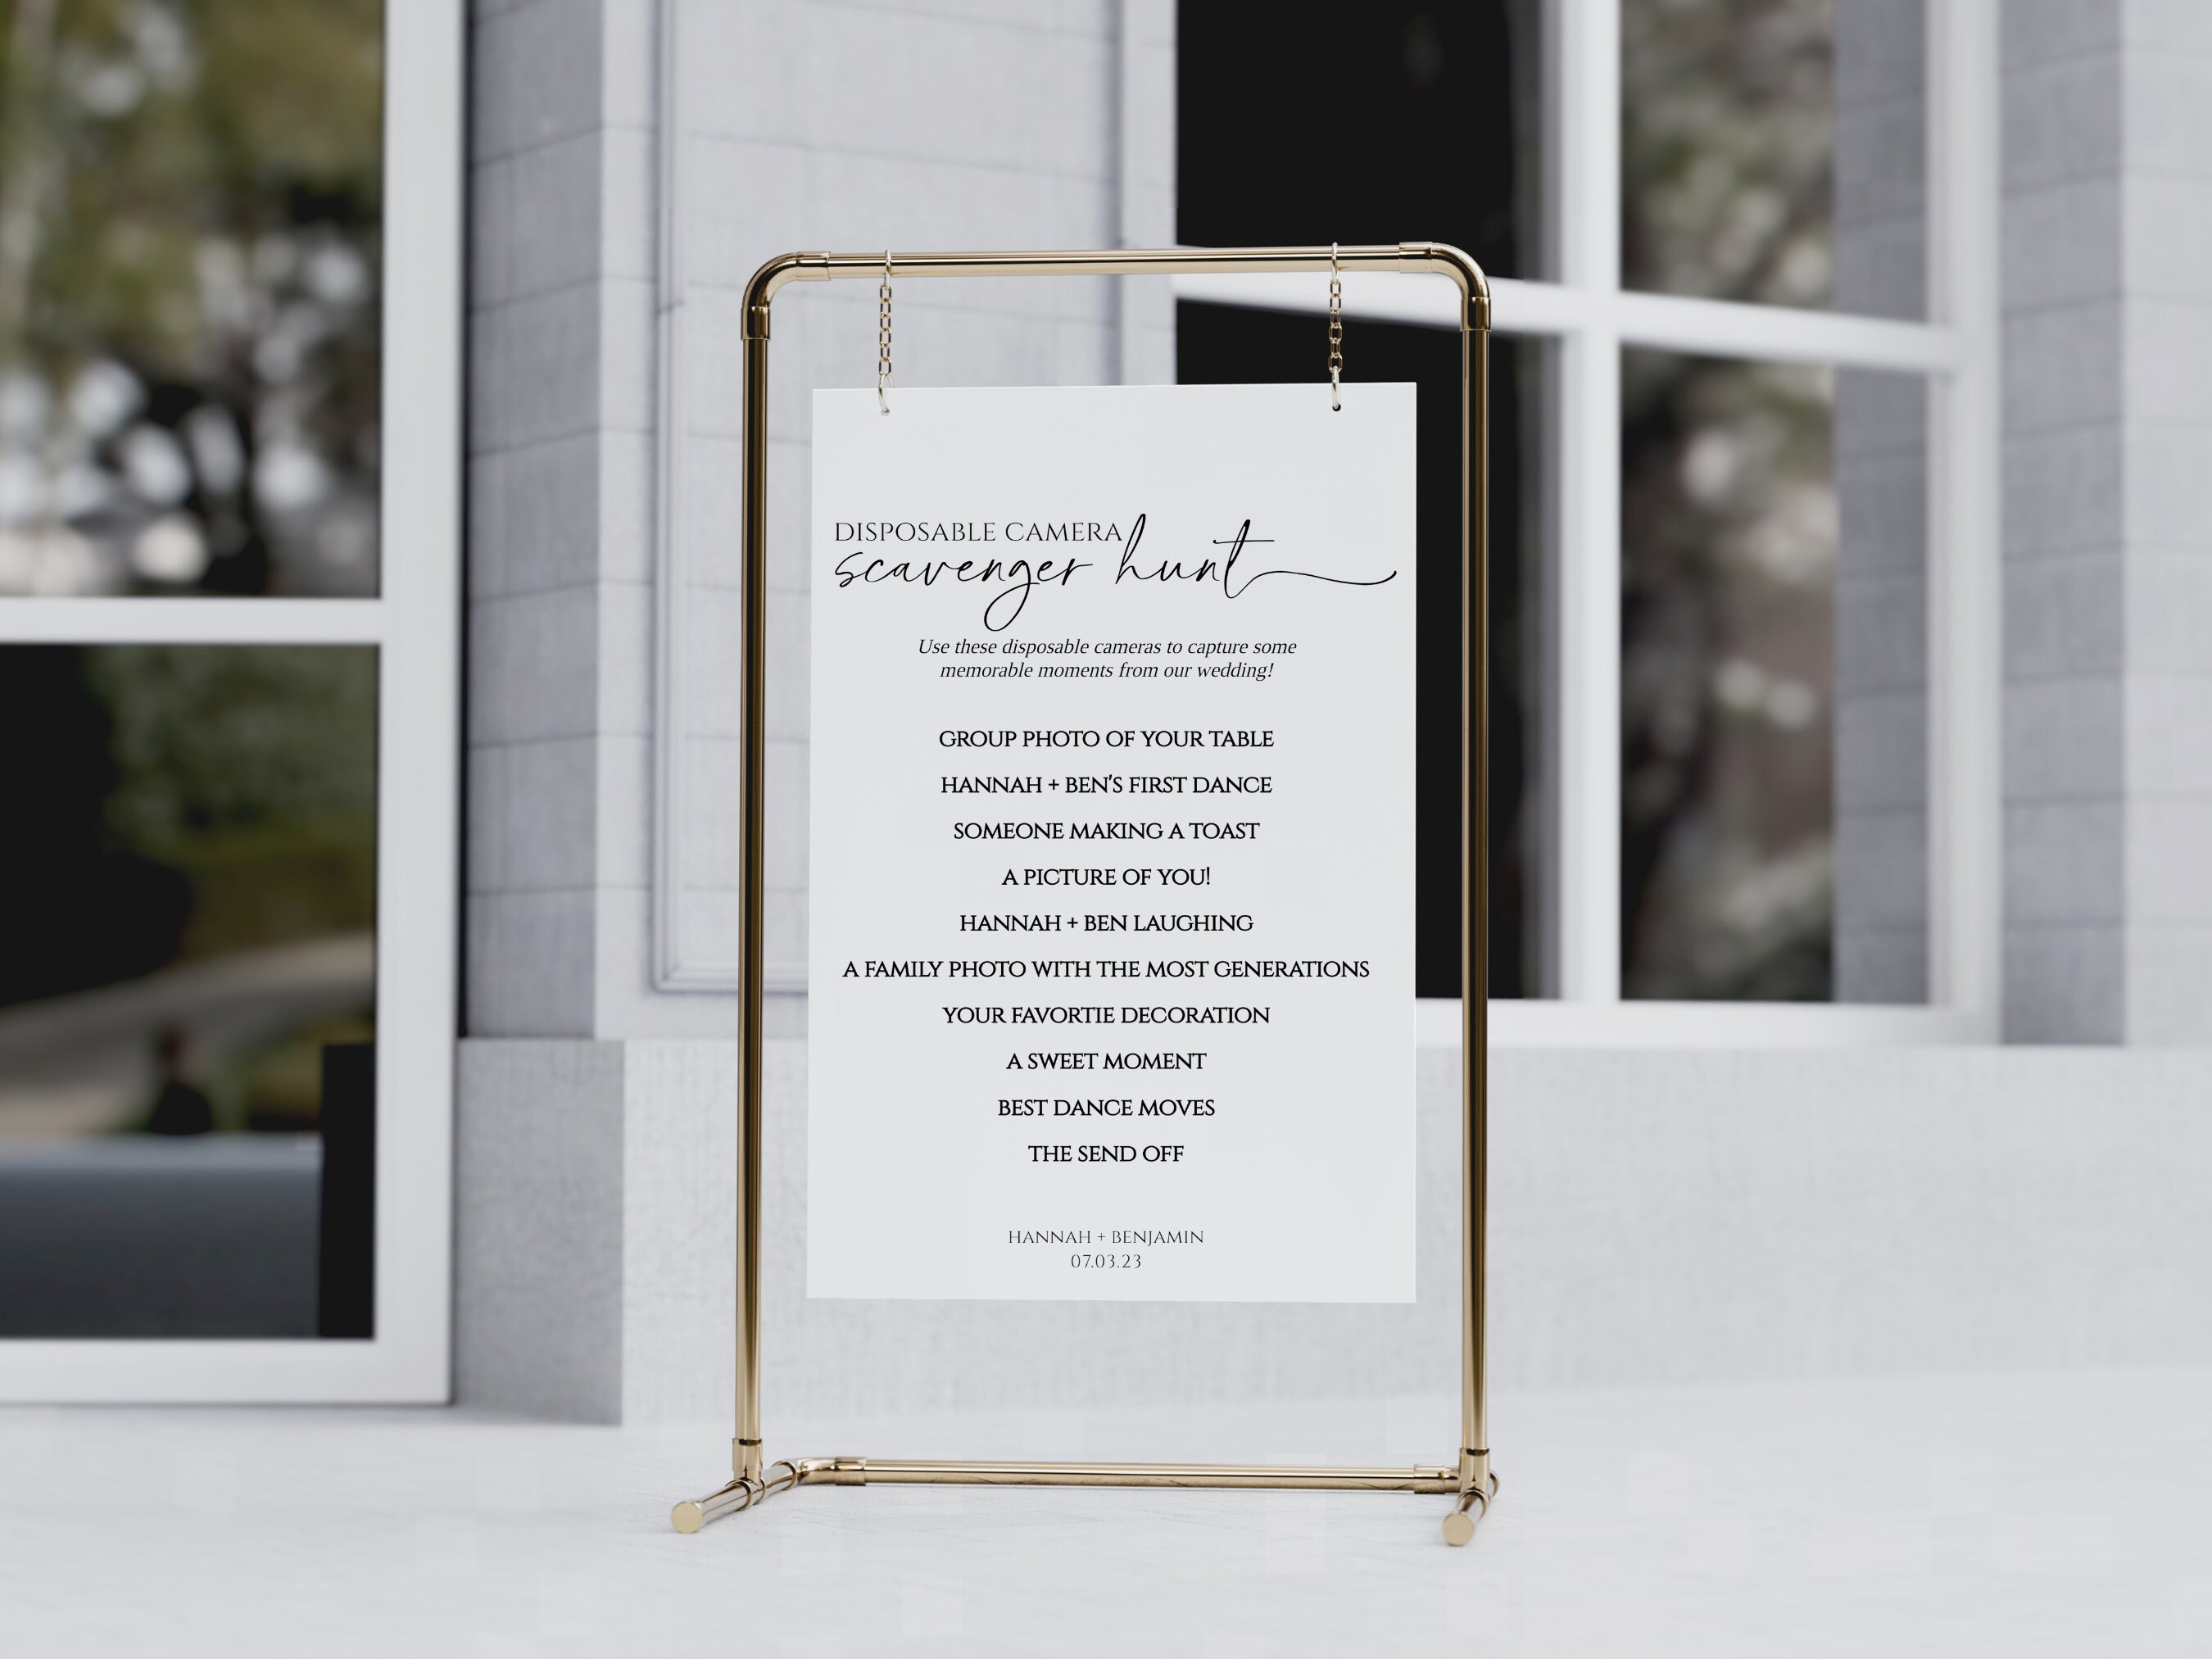 DISPOSABLE CAMERA
scavenger hunt
Use these disposable cameras to capture some
memorable moments from our wedding!
GROUP PHOTO OF YOUR TABLE
HANNAH + BEN'S FIRST DANCE
SOMEONE MAKING A TOAST
A PICTURE OF YOU!
HANNAH + BEN LAUGHING
A FAMILY PHOTO WITH THE MOST GENERATIONS
YOUR FAVORTIE DECORATION
A SWEET MOMENT
BEST DANCE MOVES
THE SEND OFF
HANNAH + BENJAMIN
07.03.23